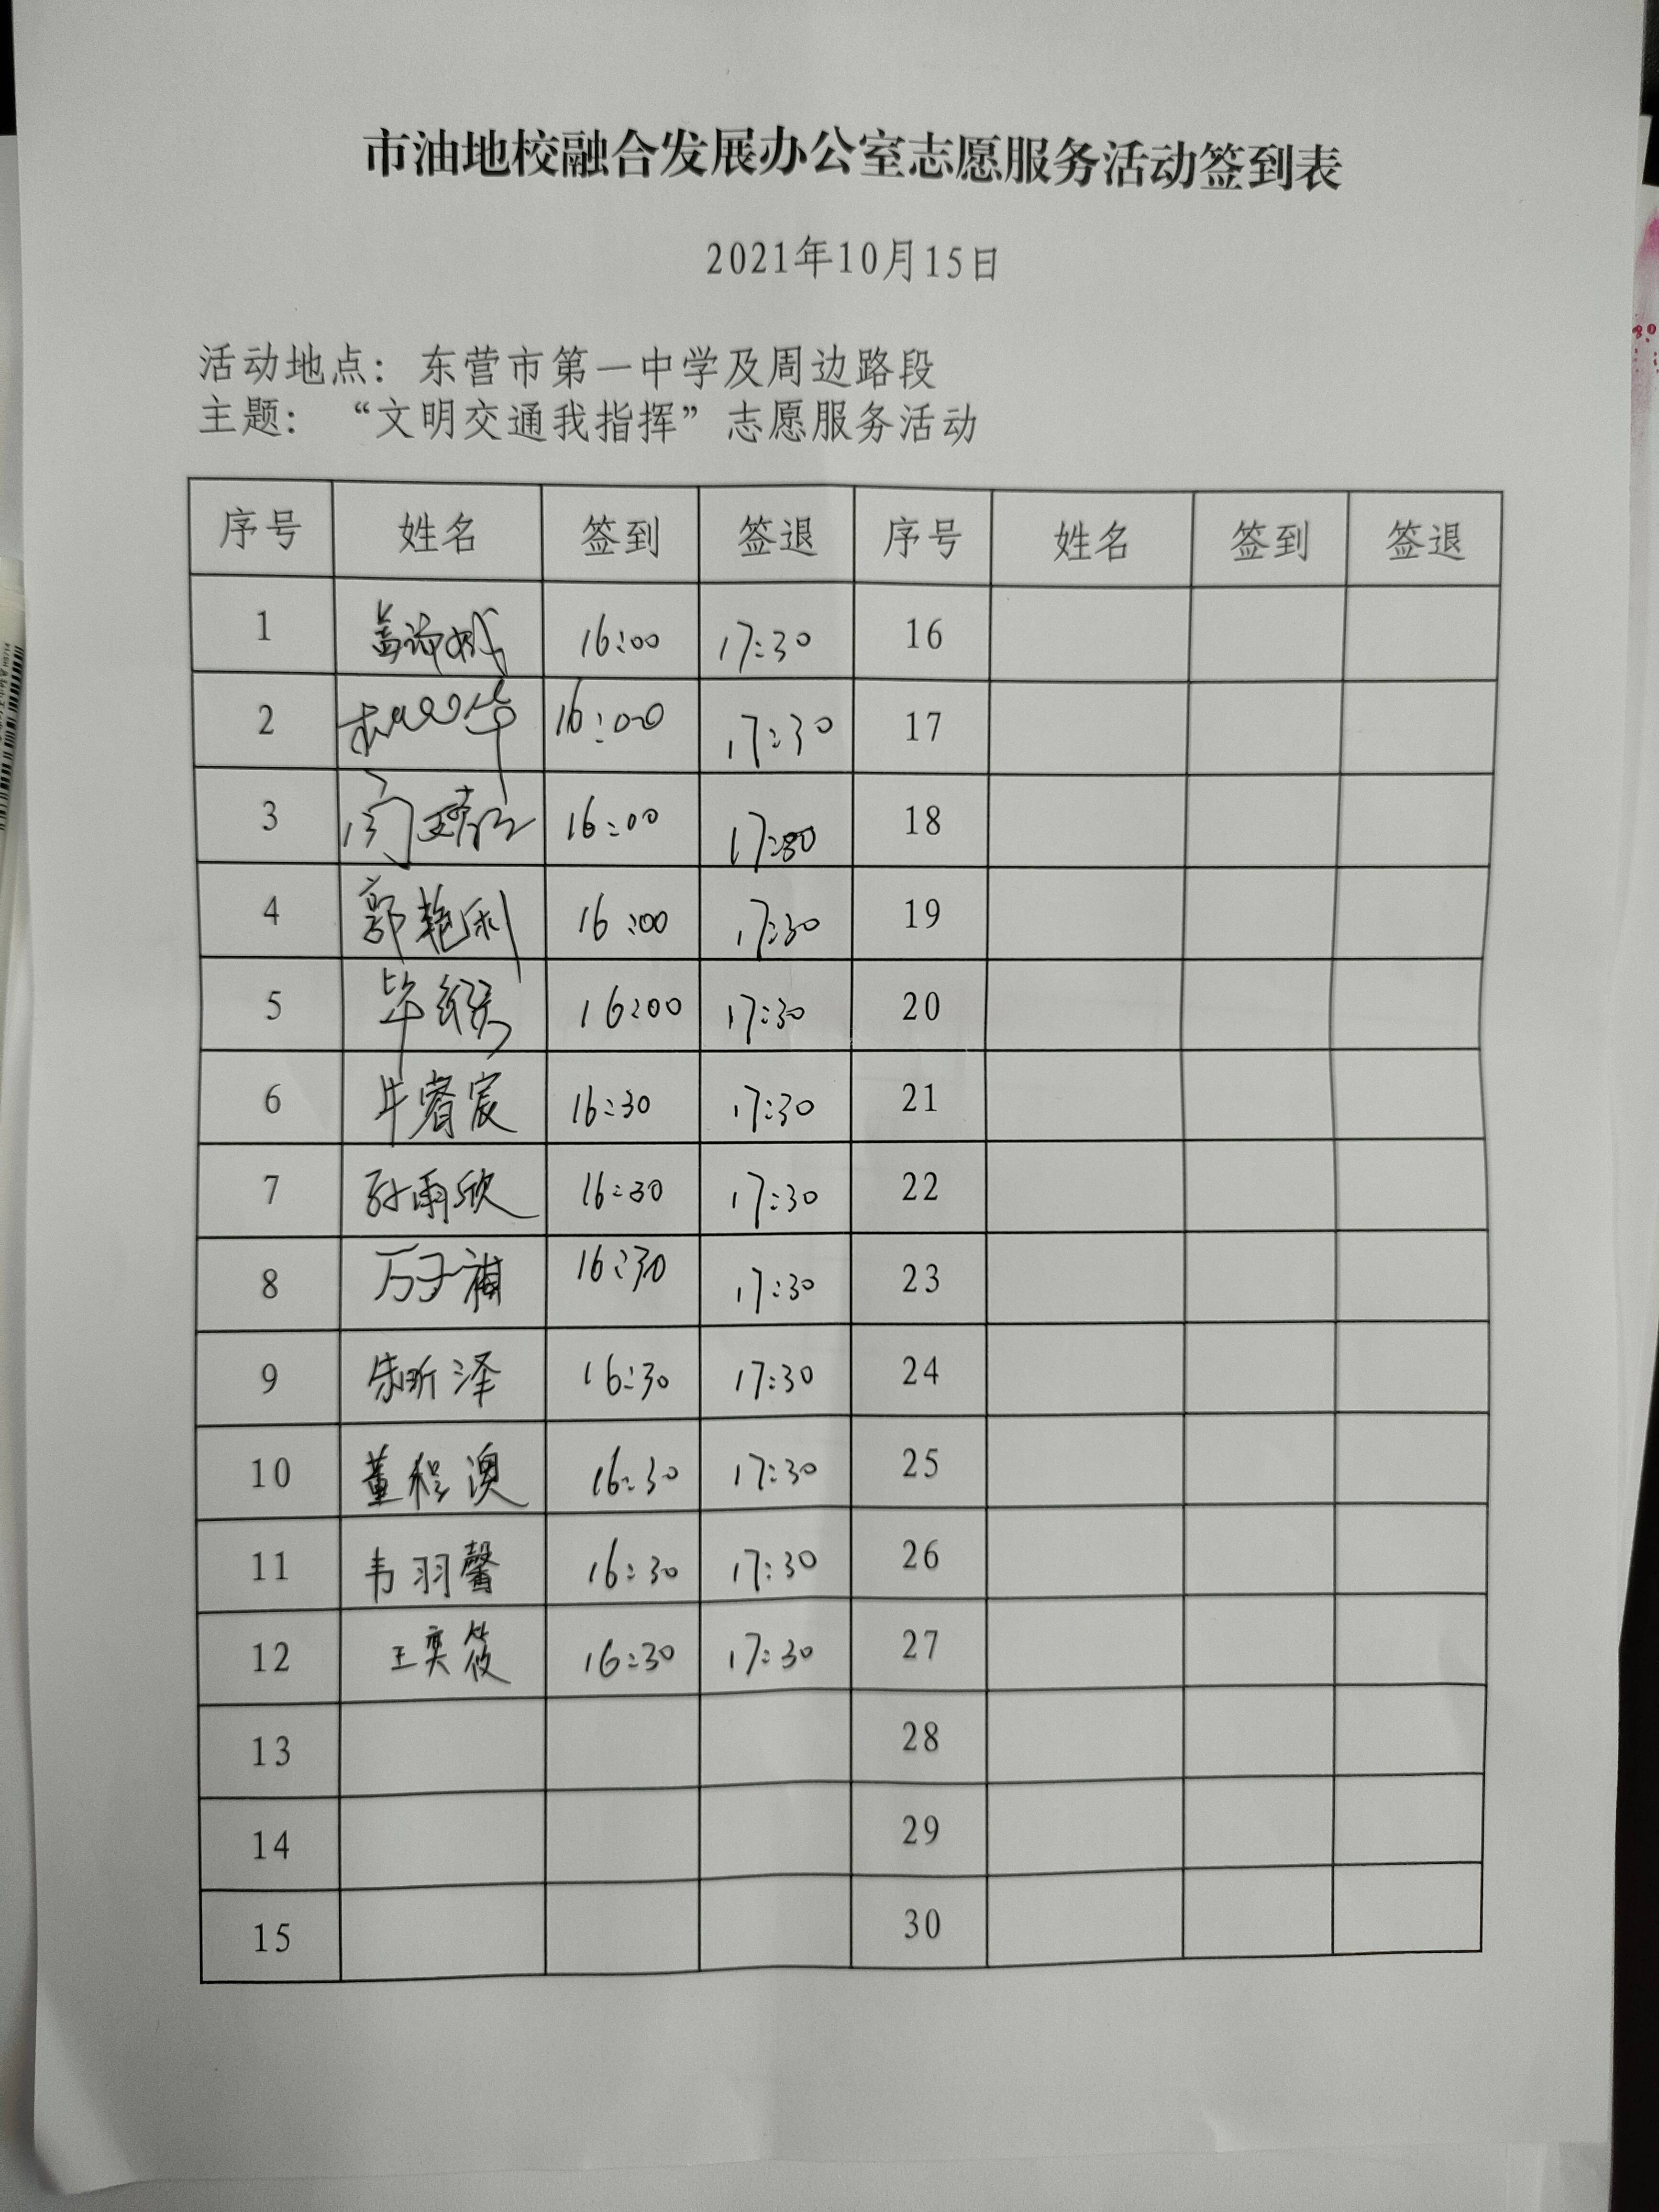 市油地校融合发展办公室志愿服务活动签到表
2021年10月15日
活动地点：东营市第一中学及周边路段
主题：“文明交通我指挥”志愿服务活动
序号 姓名 签到 签退 序号 姓名 签到 签退
1 16:00 17:30 16
2 16:00 17:30 17
3 16:00 17:30 18
4 郭艳利 16:00 17:30 19
5 毕 16:00 17:30 20
6 牛睿宸 16:30 17:30 21
7 孙雨欣 16:30 17:30 22
8 万子祺 16:30 17:30 23
9 朱昕泽 16:30 17:30 24
10 董程澳 16:30 17:30 25
11 韦羽馨 16:30 17:30 26
12 王奕筱 16:30 17:30 27
13 28
14 29
15 30